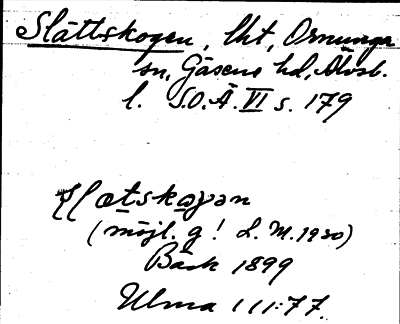 Slättskogen, lht, Ornunga
sn, Gäsene hd, Älvsb.
l. S.O.Ä. VI s. 179
Slatskagan
(möjl. g! L. M. 1930)
Bäck 1899
Ulma 111:77.